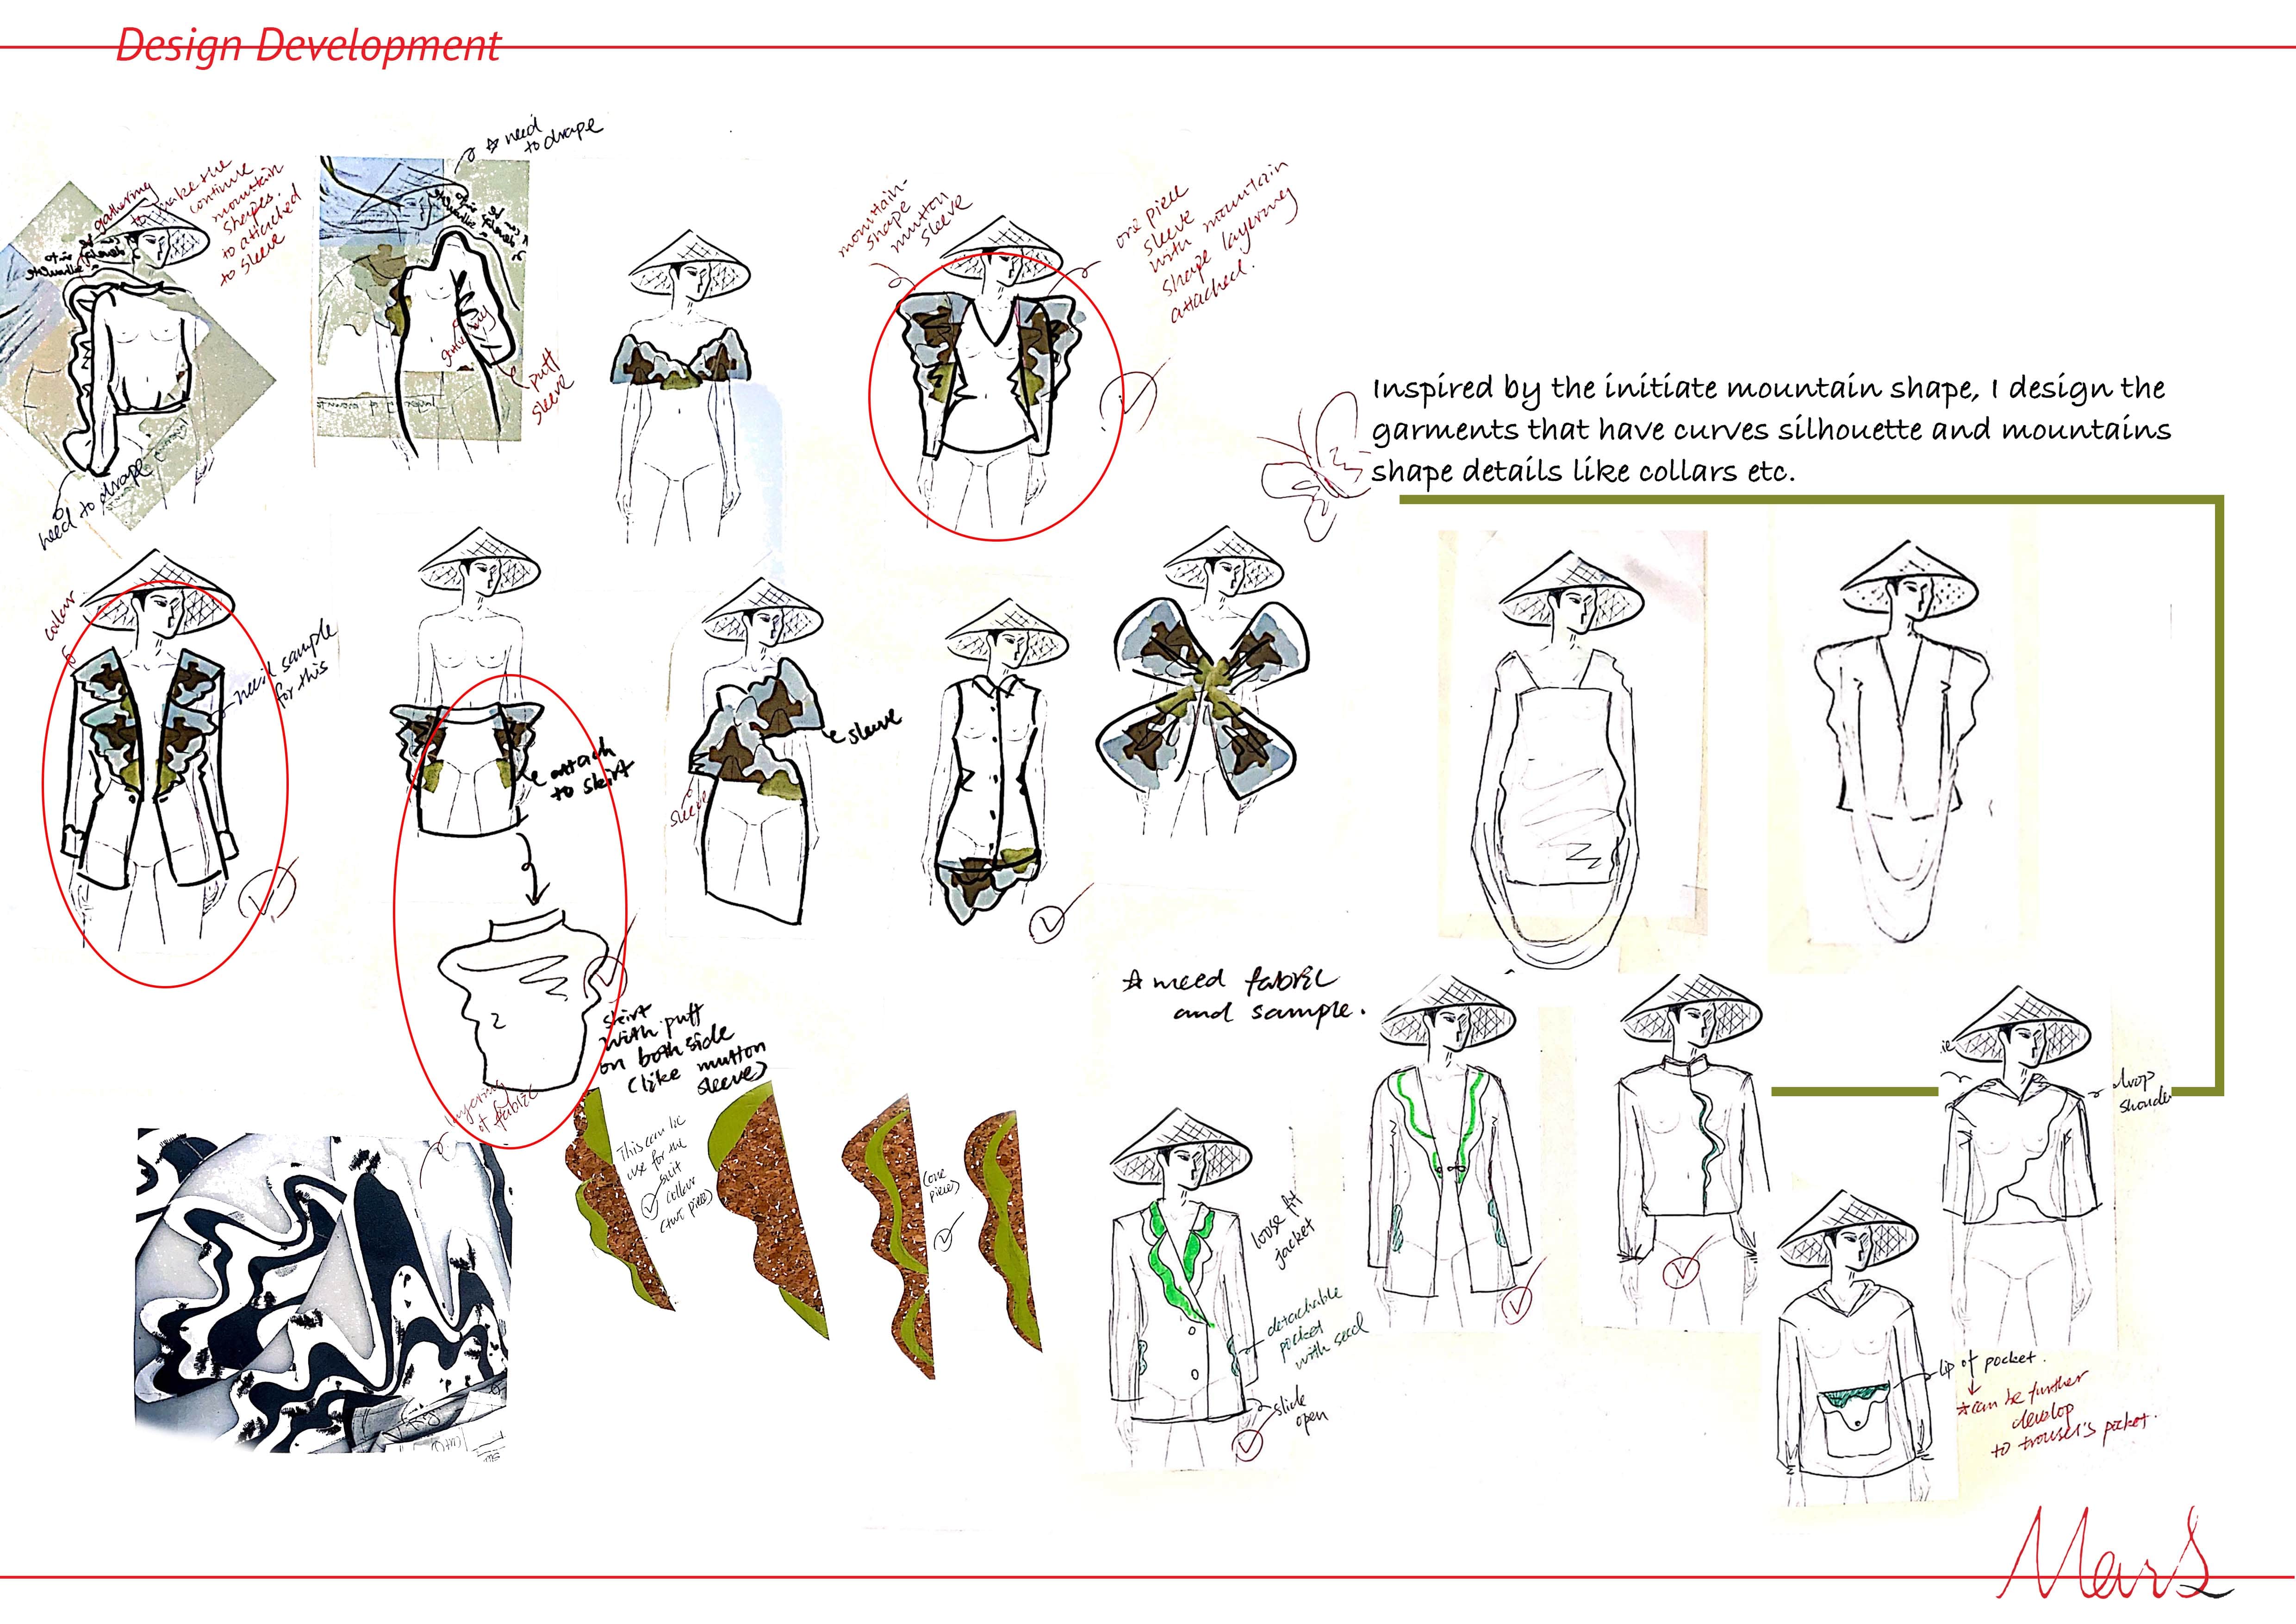 Design Development
gathering
to make the
continue
mountain
shapes.
to attached
to sleeve
need to drape
☆ need
to drape
gathering
puff
sleeve
mountain-
shape
mutton
sleeve
one piece
sleeve
with mountain
shape layering
attached.
Inspired by the initiate mountain shape, I design the
garments that have curves silhouette and mountains
shape details like collars etc.
collar
need sample
for this
attach
to skirt
sleeve
sleeve
skirt
with puff
on both side
(like mutton
sleeve)
layering
of fabric
This can be
use for the
suit
collar
(two piece)
(one
piece)
☆ need fabric
and sample.
loose fit
jacket
detachable
pocket
with seed
slide
open
drop
shoulder
lip of pocket.
☆can be further
develop
to trouser's pocket.
Mars